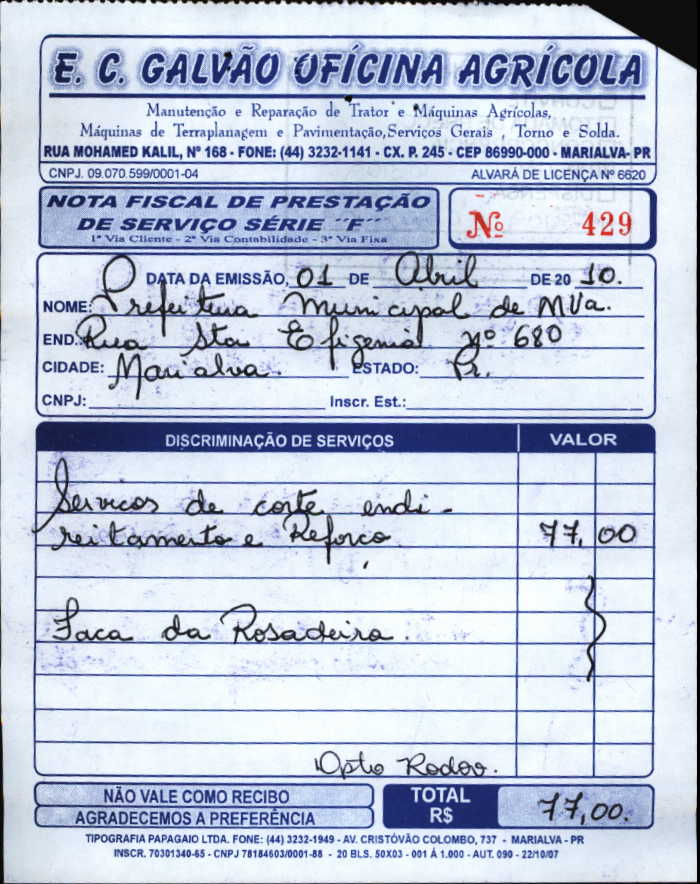 E. C. GALVÃO OFÍCINA AGRÍCOLA
Manutenção e Reparação de Trator e Máquinas Agrícolas,
Máquinas de Terraplanagem e Pavimentação,Serviços Gerais , Torno e Solda.
RUA MOHAMED KALIL, Nº 168 - FONE: (44) 3232-1141 - CX. P. 245 - CEP 86990-000 - MARIALVA- PR
CNPJ. 09.070.599/0001-04 ALVARÁ DE LICENÇA Nº 6620
NOTA FISCAL DE PRESTAÇÃO
DE SERVIÇO SÉRIE "F"
1ª Via Cliente - 2ª Via Contabilidade - 3ª Via Fixa
Nº 429
DATA DA EMISSÃO, 01 DE Abril DE 20 10.
NOME: Prefeitura Municipal de MVa.
END.: Rua Sta Efigenia nº 680
CIDADE: Marialva. ESTADO: Pr.
CNPJ: Inscr. Est.:
DISCRIMINAÇÃO DE SERVIÇOS VALOR
Serviços de corte endi-
reitamento e Reforço 77,00
Faca da Rosadeira.
Dpto Rodov.
NÃO VALE COMO RECIBO
AGRADECEMOS A PREFERÊNCIA
TOTAL
R$ 77,00.
TIPOGRAFIA PAPAGAIO LTDA. FONE: (44) 3232-1949 - AV. CRISTÓVÃO COLOMBO, 737 - MARIALVA - PR
INSCR. 70301340-65 - CNPJ 78184603/0001-88 - 20 BLS. 50X03 - 001 Á 1.000 - AUT. 090 - 22/10/07